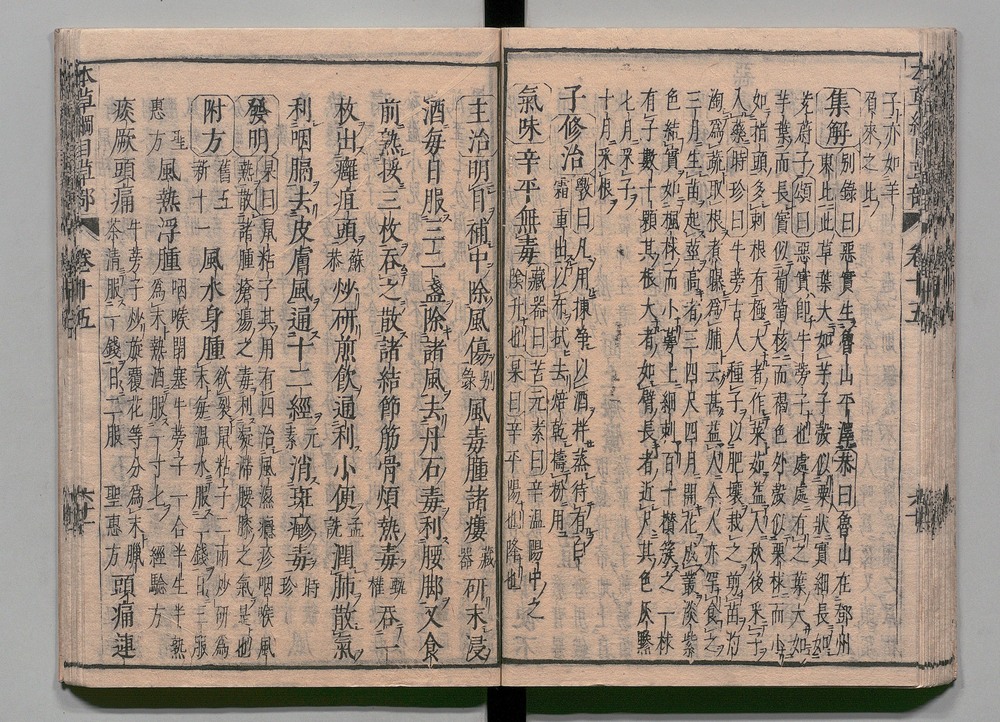 子亦如羊
負來之比
集解別錄曰惡實生魯山平澤恭曰魯山在鄧州
東北此草葉大如芋子殼似栗狀實細長如
茺蔚子頌曰惡實即牛蒡子也處處有之葉大如
芋葉而長實似葡萄核而褐色外殼似栗林而小
如指頭多刺根有極大者作菜茹益人秋後采子
入藥時珍曰牛蒡古人種子以肥壤栽之剪苗汋
淘為蔬取根煮曝為脯云甚益人今人亦罕食之
三月生苗起莖高者三四尺四月開花成叢淡紫
色結實如楓梂而小萼上細刺百十攢簇之一梂
有子數十顆其根大者如臂長者近尺其色灰黲
七月采子
十月采根
子修治斅曰凡用揀淨以酒拌蒸待有白
霜重出以布拭去焙乾擣粉用
氣味辛平無毒藏器曰苦元素曰辛溫陽中之
陰升也杲曰辛平陽也降也
主治明目補中除風傷別錄風毒腫諸瘻藏器研末浸
酒每日服三二盞除諸風去丹石毒利腰脚又食
前熟挼三枚吞之散諸結節筋骨煩熱毒甄權吞一
枚出癰疽頭蘇恭炒研煎飲通利小便孟詵潤肺散氣
利咽膈去皮膚風通十二經元素消斑疹毒時珍
發明杲曰鼠粘子其用有四治風濕癮疹咽喉風
熱散諸腫瘡瘍之毒利凝滯腰膝之氣是也
附方舊五新十一風水身腫欲裂鼠粘子二兩炒研為末每溫水服二錢日三服
聖惠方風熱浮腫咽喉閉塞牛蒡子一合半生半熟為末熱酒服一寸匕經驗方
痰厥頭痛牛蒡子炒旋覆花等分為末臘茶清服一錢日二服聖惠方頭痛連
本草綱目草部
卷十五